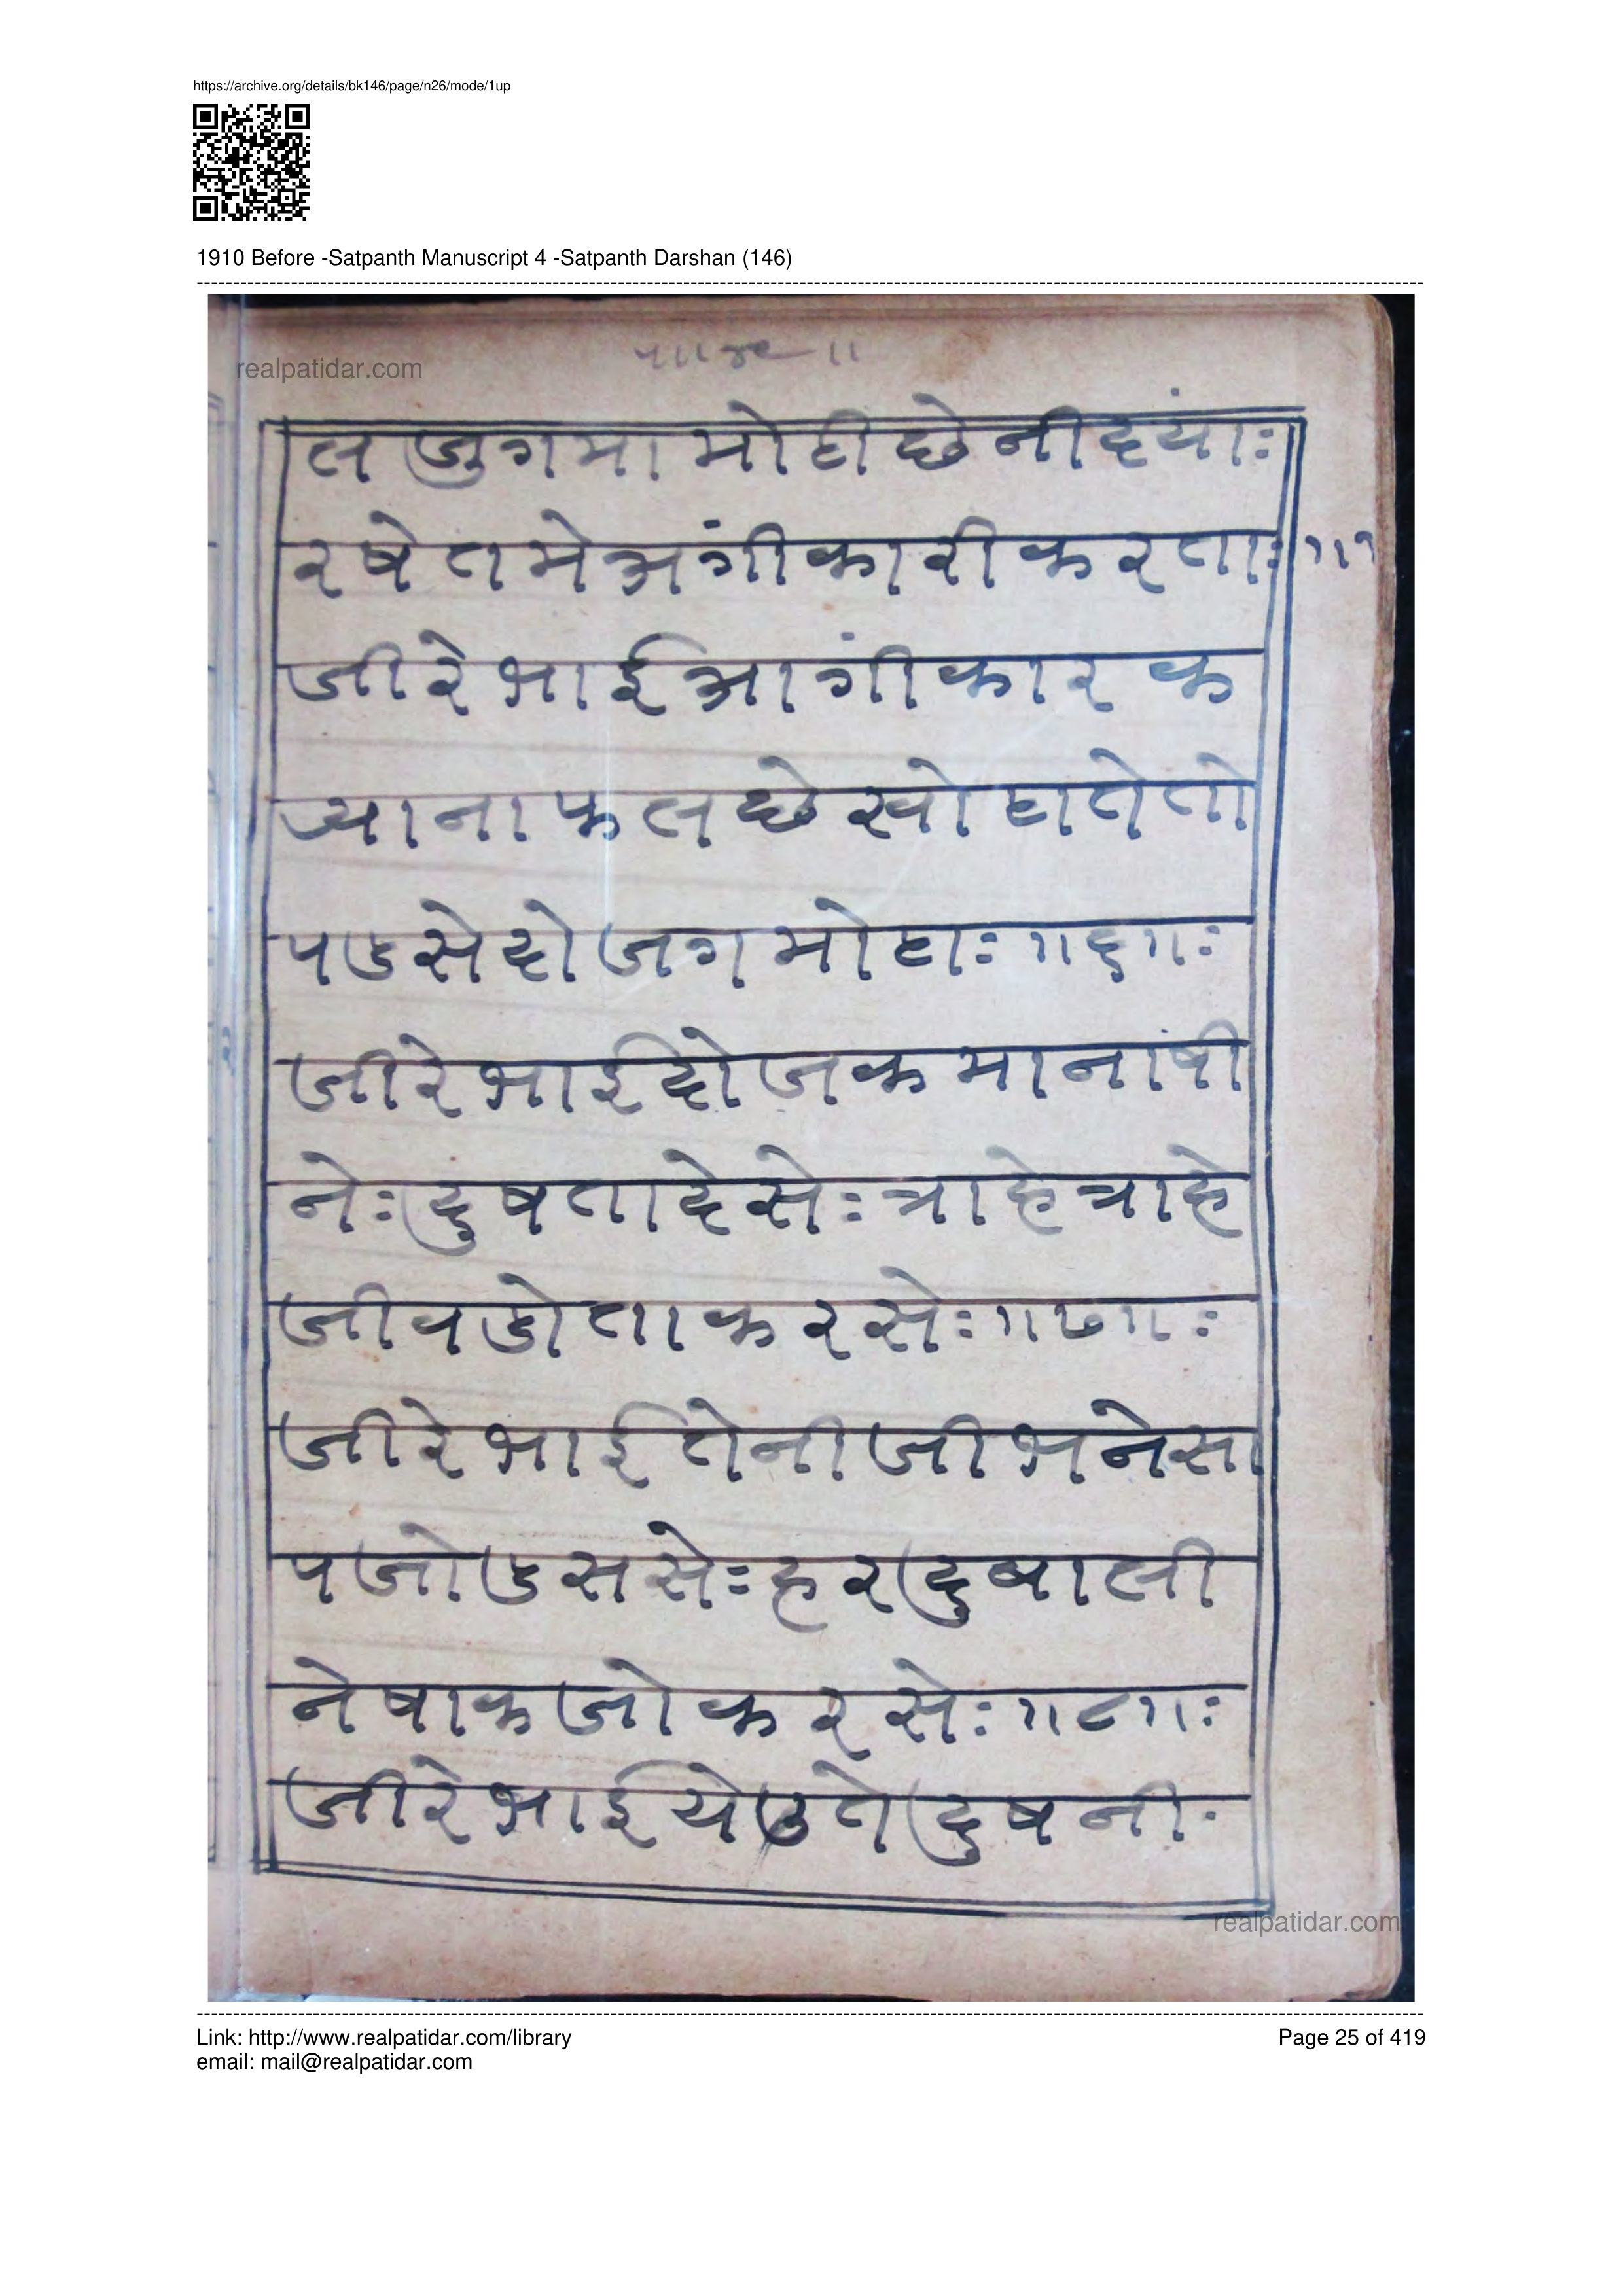 https://archive.org/details/bk146/page/n26/mode/1up
1910 Before -Satpanth Manuscript 4 -Satpanth Darshan (146)
realpatidar.com
ल जुगमा मोटी छे नीदयां:
रषे तमे अगीं कारी करता: ॥
जीरे भाई आगीं कार क
र्‍याना फल छे खोटा ते तो
पडसे दोजग मोटा: ॥६॥:
जीरे भाई दोजकमा नांषी
ने: दुष ता देसे: त्राहे त्राहे
जीवडो ता करसे: ॥७॥:
जीरे भाई तेनी जीभ ने सा
प जो डससे: हर दुबाली
ने षाक जो करसे: ॥८॥:
जीरे भाई येउ ते दुष नी
realpatidar.com
Link: http://www.realpatidar.com/library
Page 25 of 419
email: mail@realpatidar.com